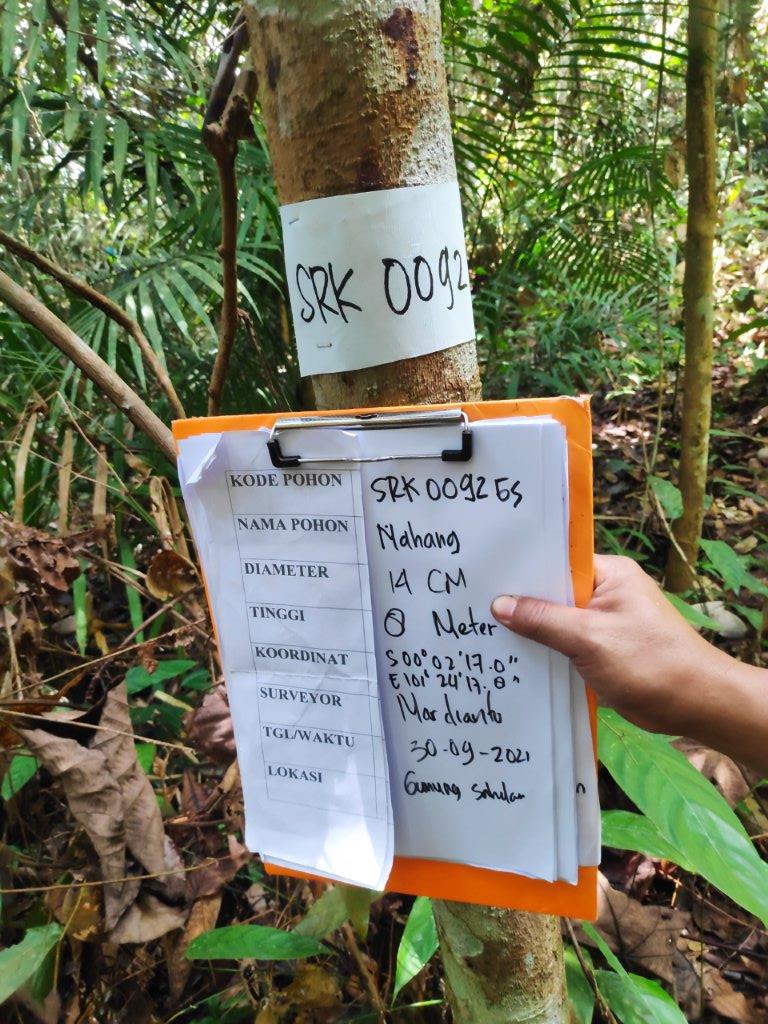 SRK 0092
KODE POHON SRK 0092 Es
NAMA POHON Mahang
DIAMETER 14 CM
TINGGI 8 Meter
KOORDINAT S 00° 02' 17.0"
E 101° 24' 17.8"
SURVEYOR Mardianto
TGL/WAKTU 30-09-2021
LOKASI Gunung Sahilan